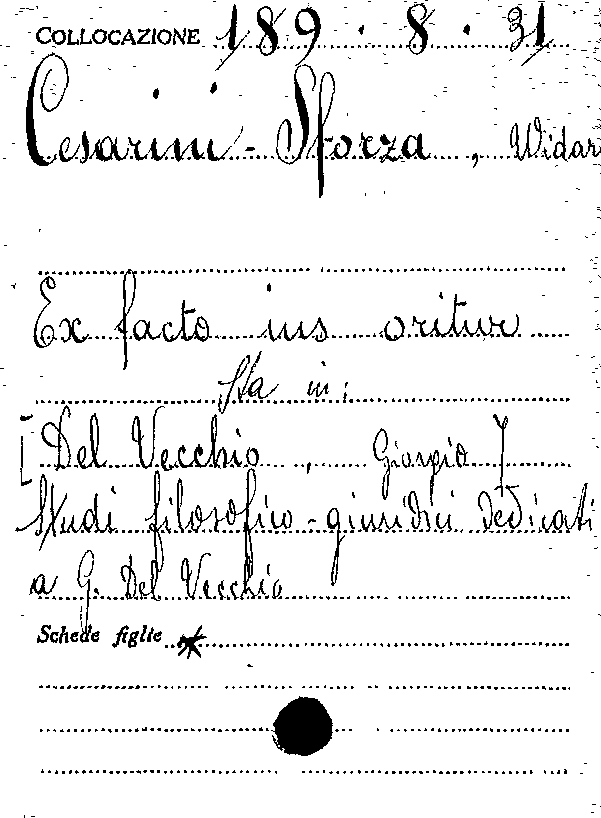 COLLOCAZIONE 189.8.31
Cesarini-Sforza, Widar
Ex facto ius oritur
Sta in:
[Del Vecchio, Giorgio]
Studi filosofico-giuridici dedicati
a G. Del Vecchio
Schede figlie *